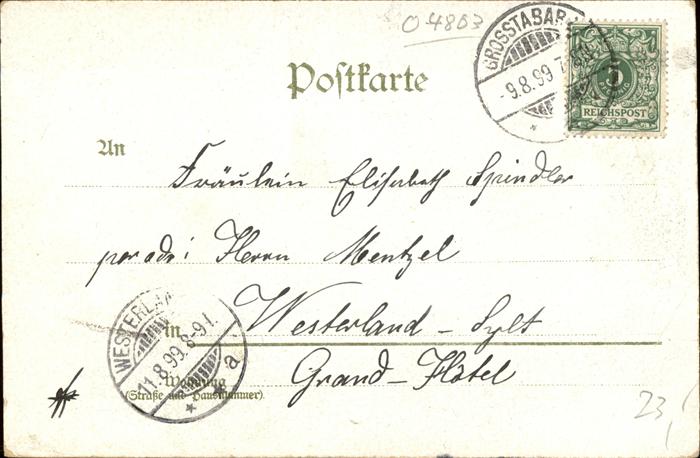 O 4803
GROSSTABAR
-9.8.99.7
5
REICHSPOST
Postkarte
An
Fräulein Elisabeth Spindler
per adr: Herrn Mentzel
in Westerland - Sylt
Grand-Hôtel
WESTERLAN
11.8.99.8-9V.
* * a
Wohnung
(Straße und Hausnummer).
23,